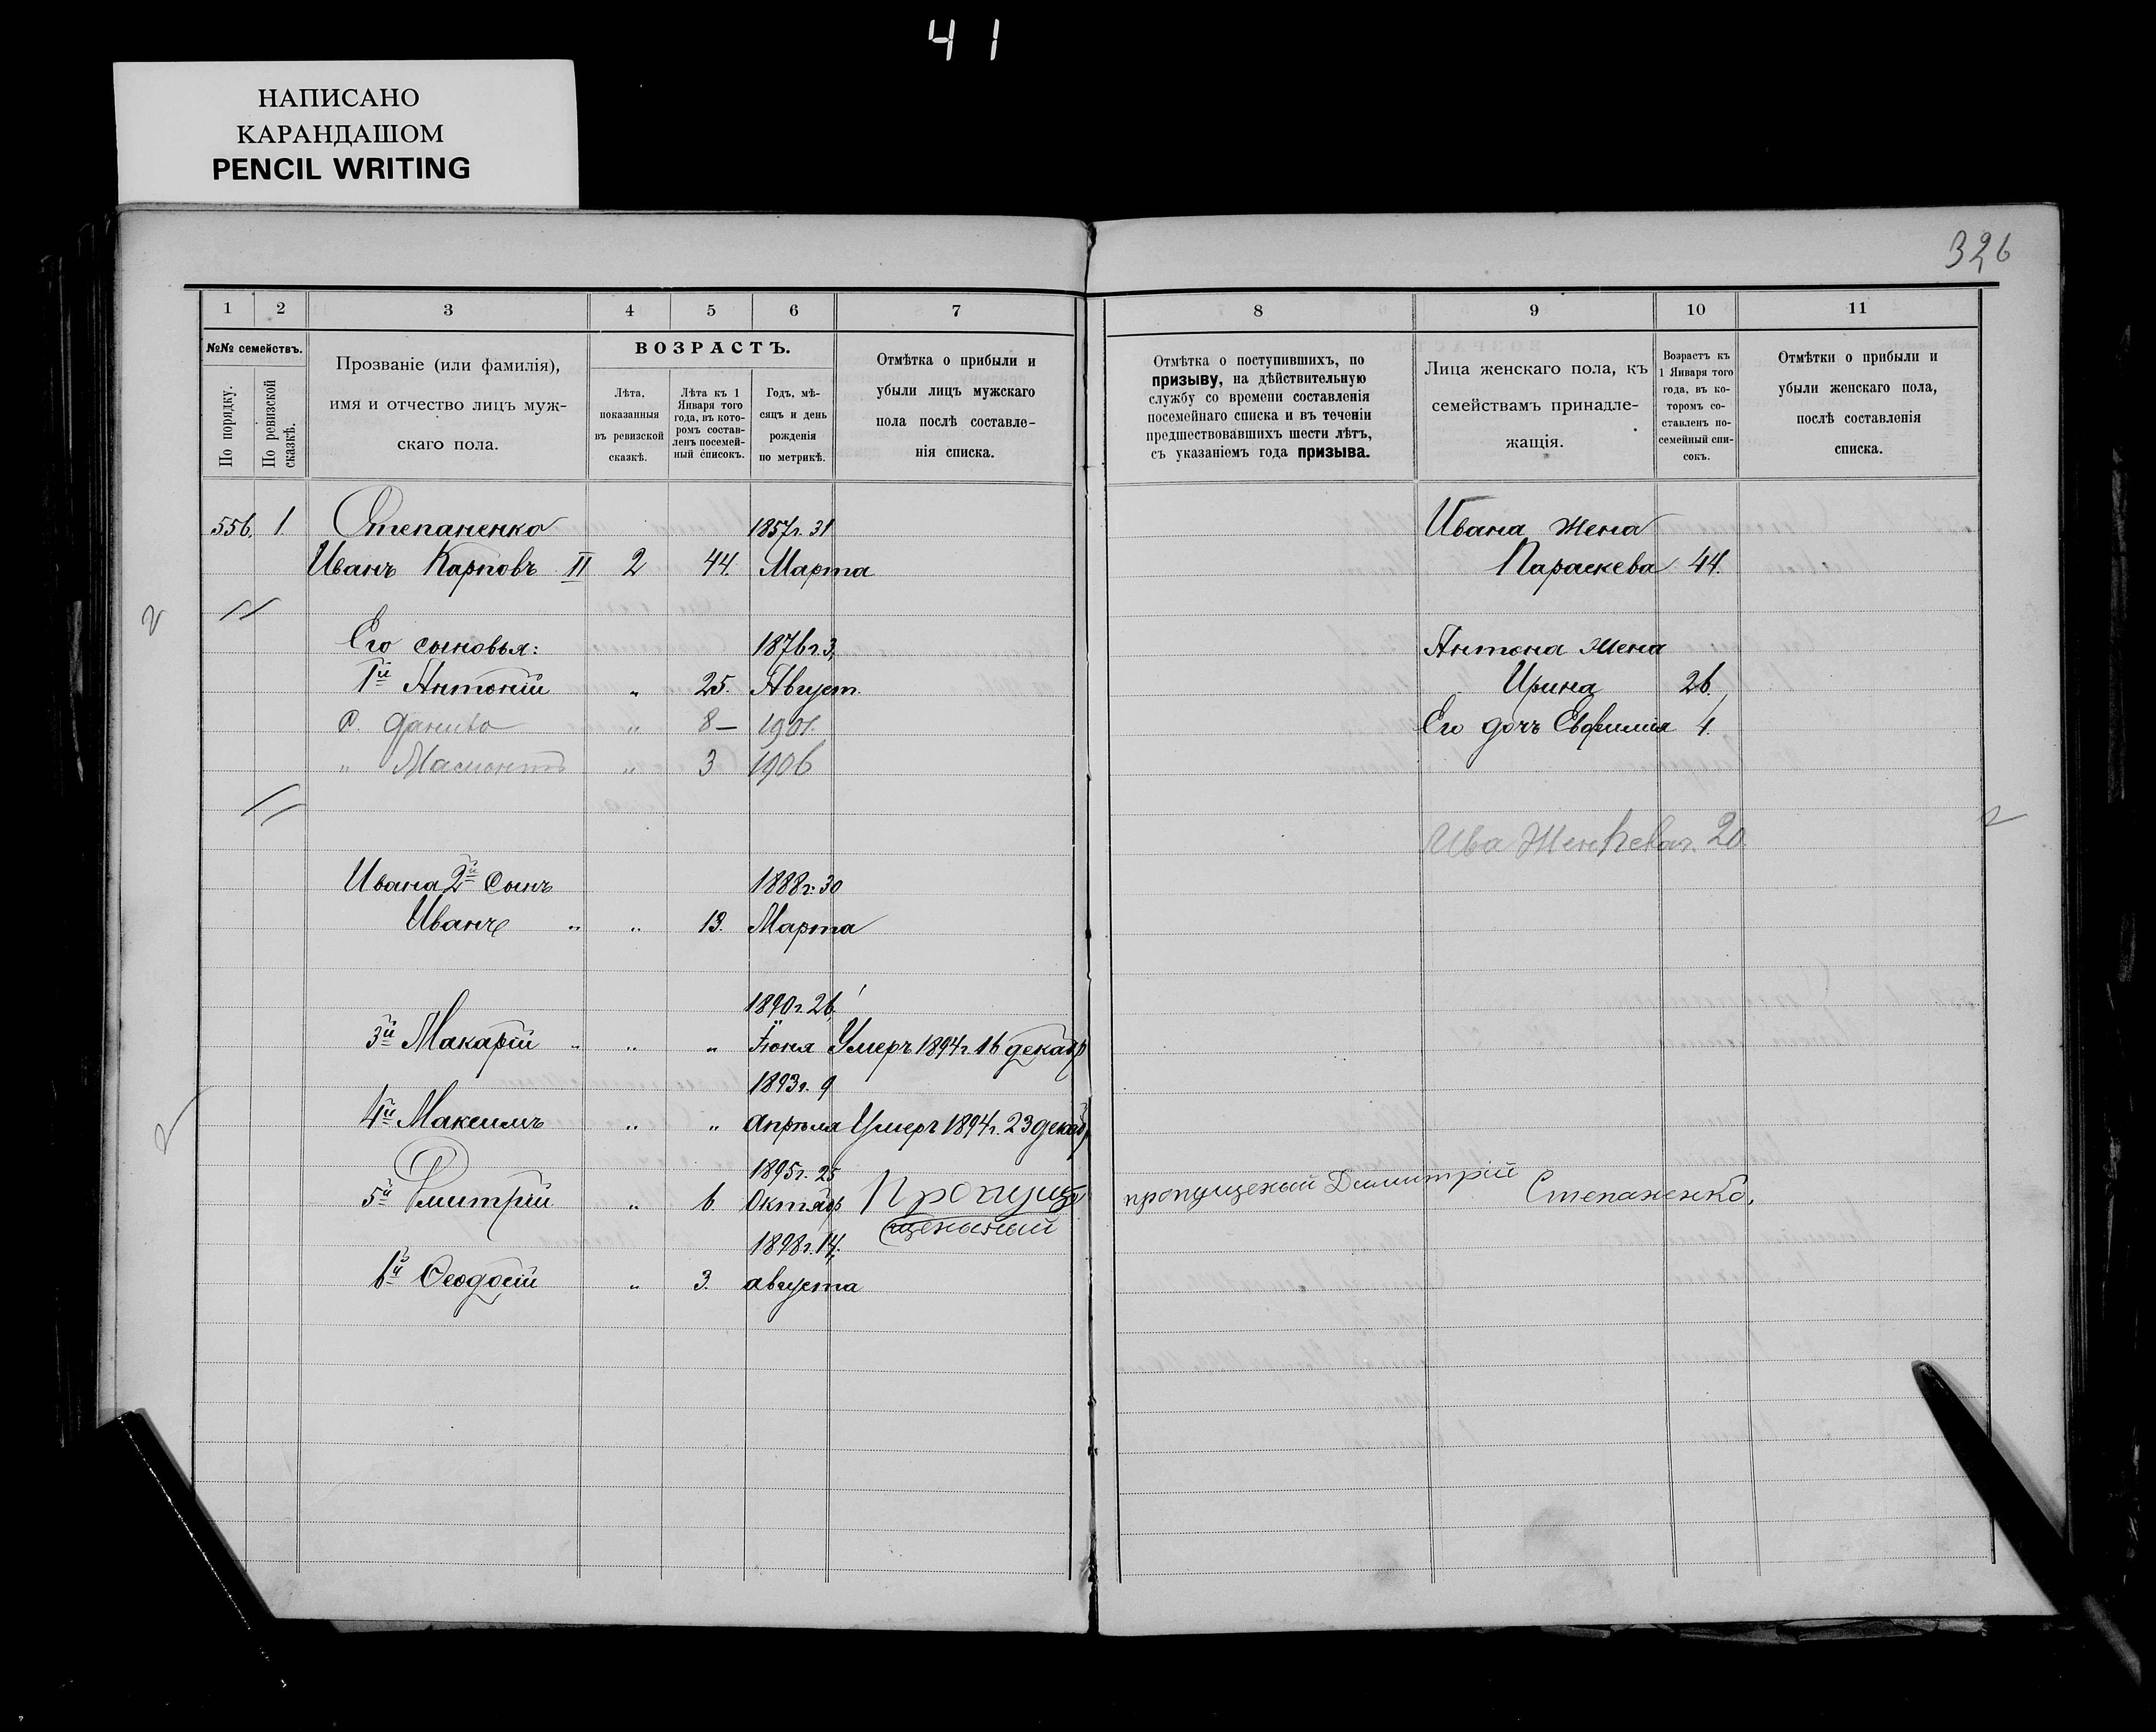 41
НАПИСАНО
КАРАНДАШОМ
PENCIL WRITING
326
1 2 3 4 5 6 7
№№ семействъ.
По порядку.
По ревизской сказкѣ.
Прозваніе (или фамилія),
имя и отчество лицъ муж-
скаго пола.
ВОЗРАСТЪ.
Лѣта,
показанныя
въ ревизской
сказкѣ.
Лѣта къ 1
Января того
года, въ кото-
ромъ состав-
ленъ посемей-
ный списокъ.
Годъ, мѣ-
сяцъ и день
рожденія
по метрикѣ.
Отмѣтка о прибыли и
убыли лицъ мужскаго
пола послѣ составле-
нія списка.
8 9 10 11
Отмѣтка о поступившихъ, по
призыву, на дѣйствительную
службу со времени составленія
посемейнаго списка и въ теченіи
предшествовавшихъ шести лѣтъ,
съ указаніемъ года призыва.
Лица женскаго пола, къ
семействамъ принадле-
жащія.
Возрастъ къ
1 Января того
года, въ ко-
торомъ со-
ставленъ по-
семейный спи-
сокъ.
Отмѣтки о прибыли и
убыли женскаго пола,
послѣ составленія
списка.
556. 1. Степаненко 1857г. 31
Иванъ Карповъ II 2 44. Марта
Его сыновья: 1876г. 3,
1й Антоній " 25. Август.
с. Данило " 8 — 1901.
" " 3 1906
Ивана 2й Сынъ 1888г. 30
Иванъ " " 13. Марта
1890г. 26
3й Макарій " " " Іюня Умеръ 1894г. 16 декабр
1893г. 9
4й Максимъ " " Апрѣля Умеръ 1894г. 23 декабр
1895г. 25
5й Дмитрій " 6. Октябр Пропущ
щенный
1898г. 14,
6й Феодосій " 3. августа
Ивана жена
Параскева 44.
Антона жена
Ирина 26.
Его дочь Евфимія 4.
Ива Жен 20.
пропущеный Димитрій Степаненко,